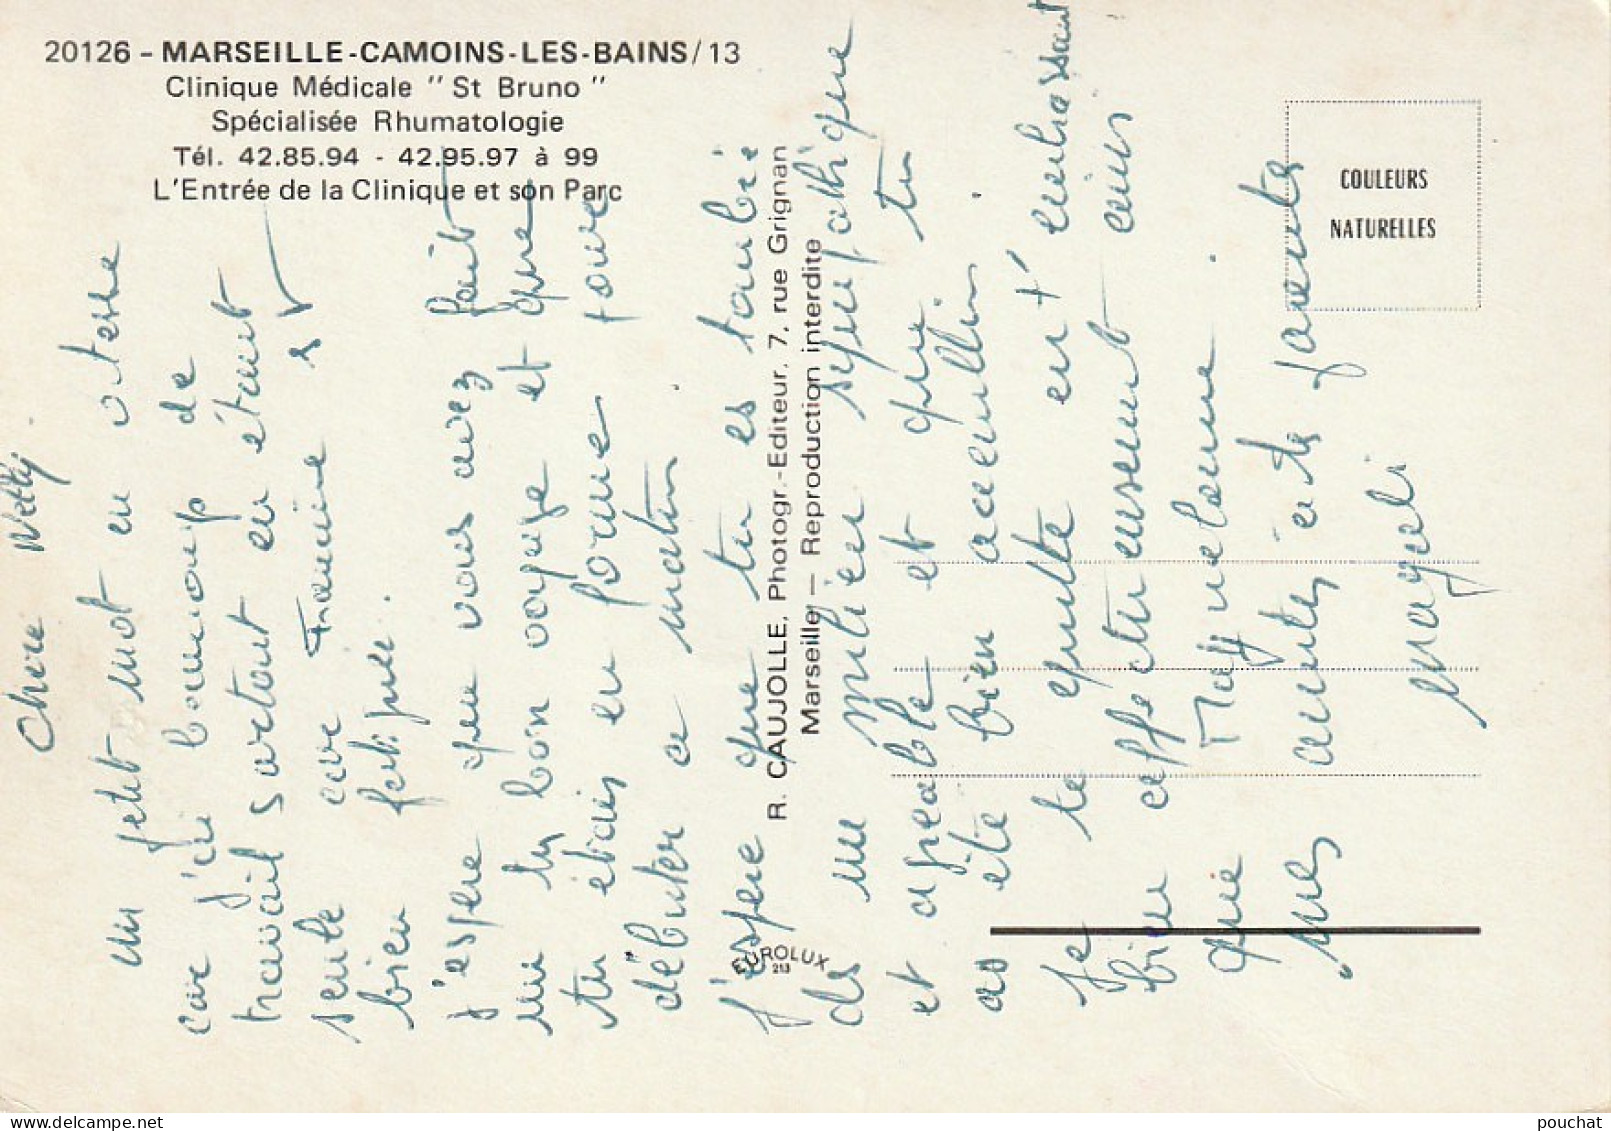 20126 - MARSEILLE-CAMOINS-LES-BAINS/13
Clinique Médicale " St Bruno "
Spécialisée Rhumatologie
Tél. 42.85.94 - 42.95.97 à 99
L'Entrée de la Clinique et son Parc
COULEURS
NATURELLES
R. CAUJOLLE, Photogr.-Editeur, 7, rue Grignan
Marseille — Reproduction interdite
EUROLUX
213
Chère
un petit mot en vitesse
car j'ai beaucoup de
travail surtout en étant
seule car Francine est
bien fatiguée.
j'espère que vous avez fait
un bon voyage et que
tu étais en forme pour
débuter ce matin
J'espère que tu es tombée
ds un milieu sympathique
et agréable et que tu
as été bien accueillie.
Je te quitte en t'embrassant
bien affectueusement ainsi
que Maguelonne.
Mes amitiés à tes parents
Magali
pouchat